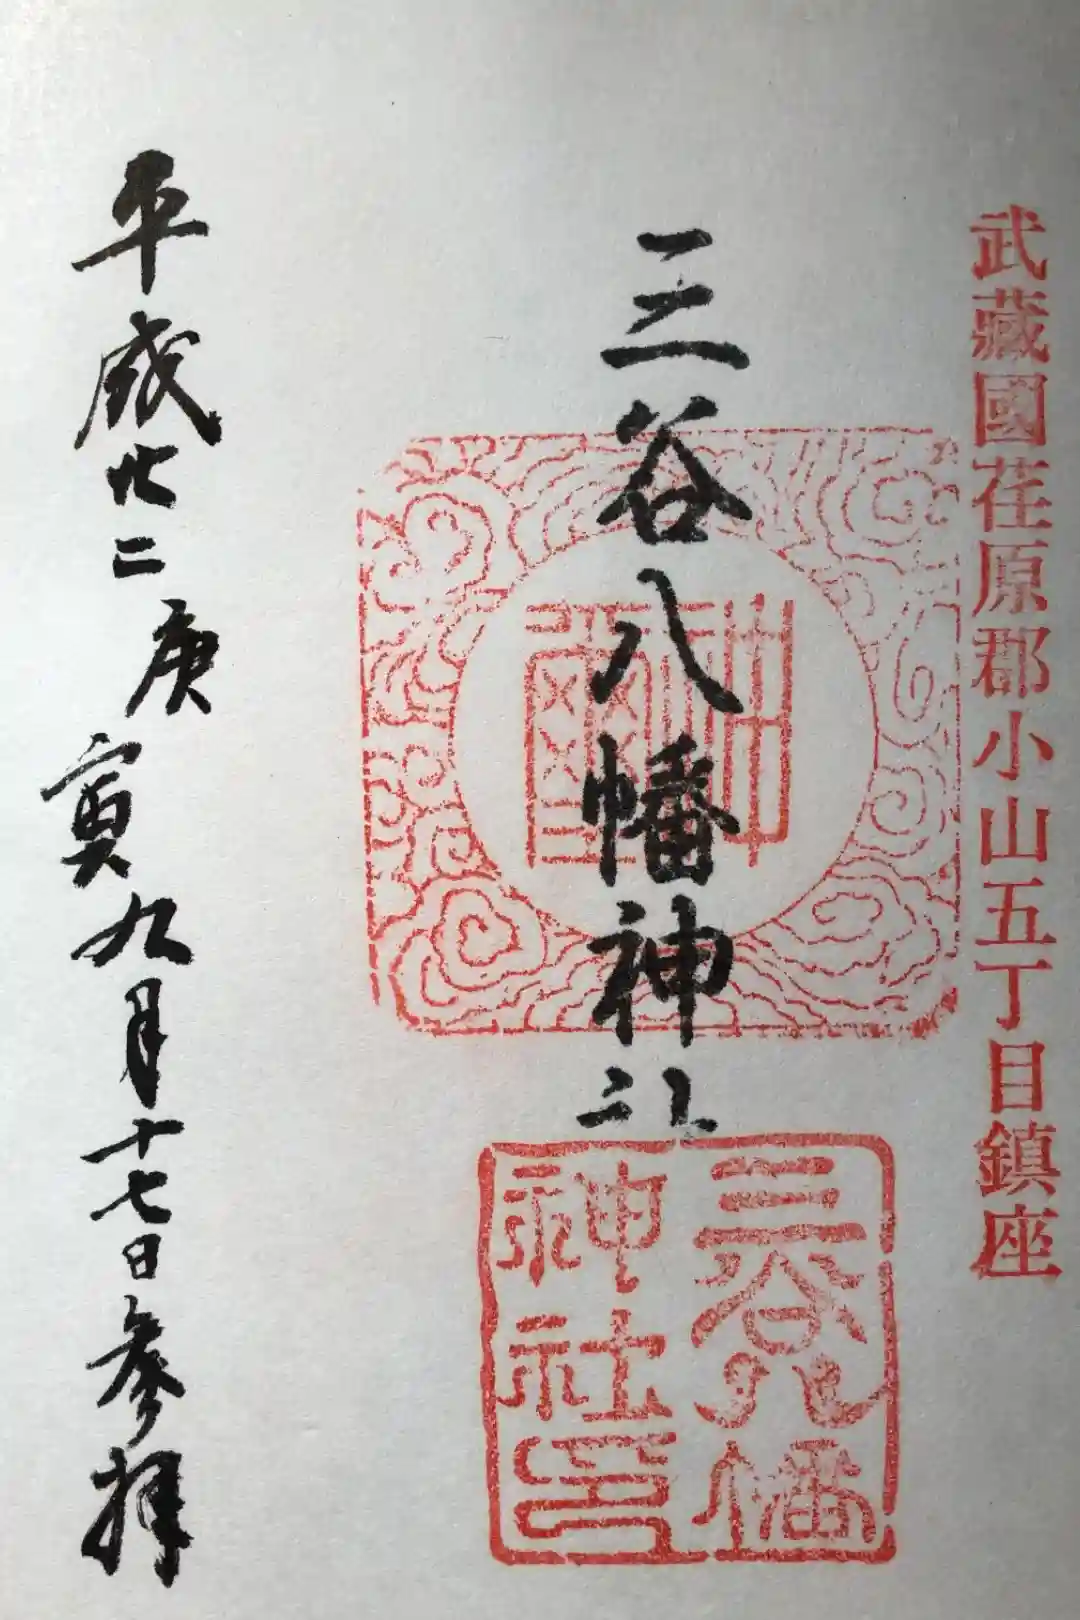 武藏國荏原郡小山五丁目鎮座
三谷八幡神社
神璽
三谷八幡
神社印
平成廿二庚寅九月十七日参拝